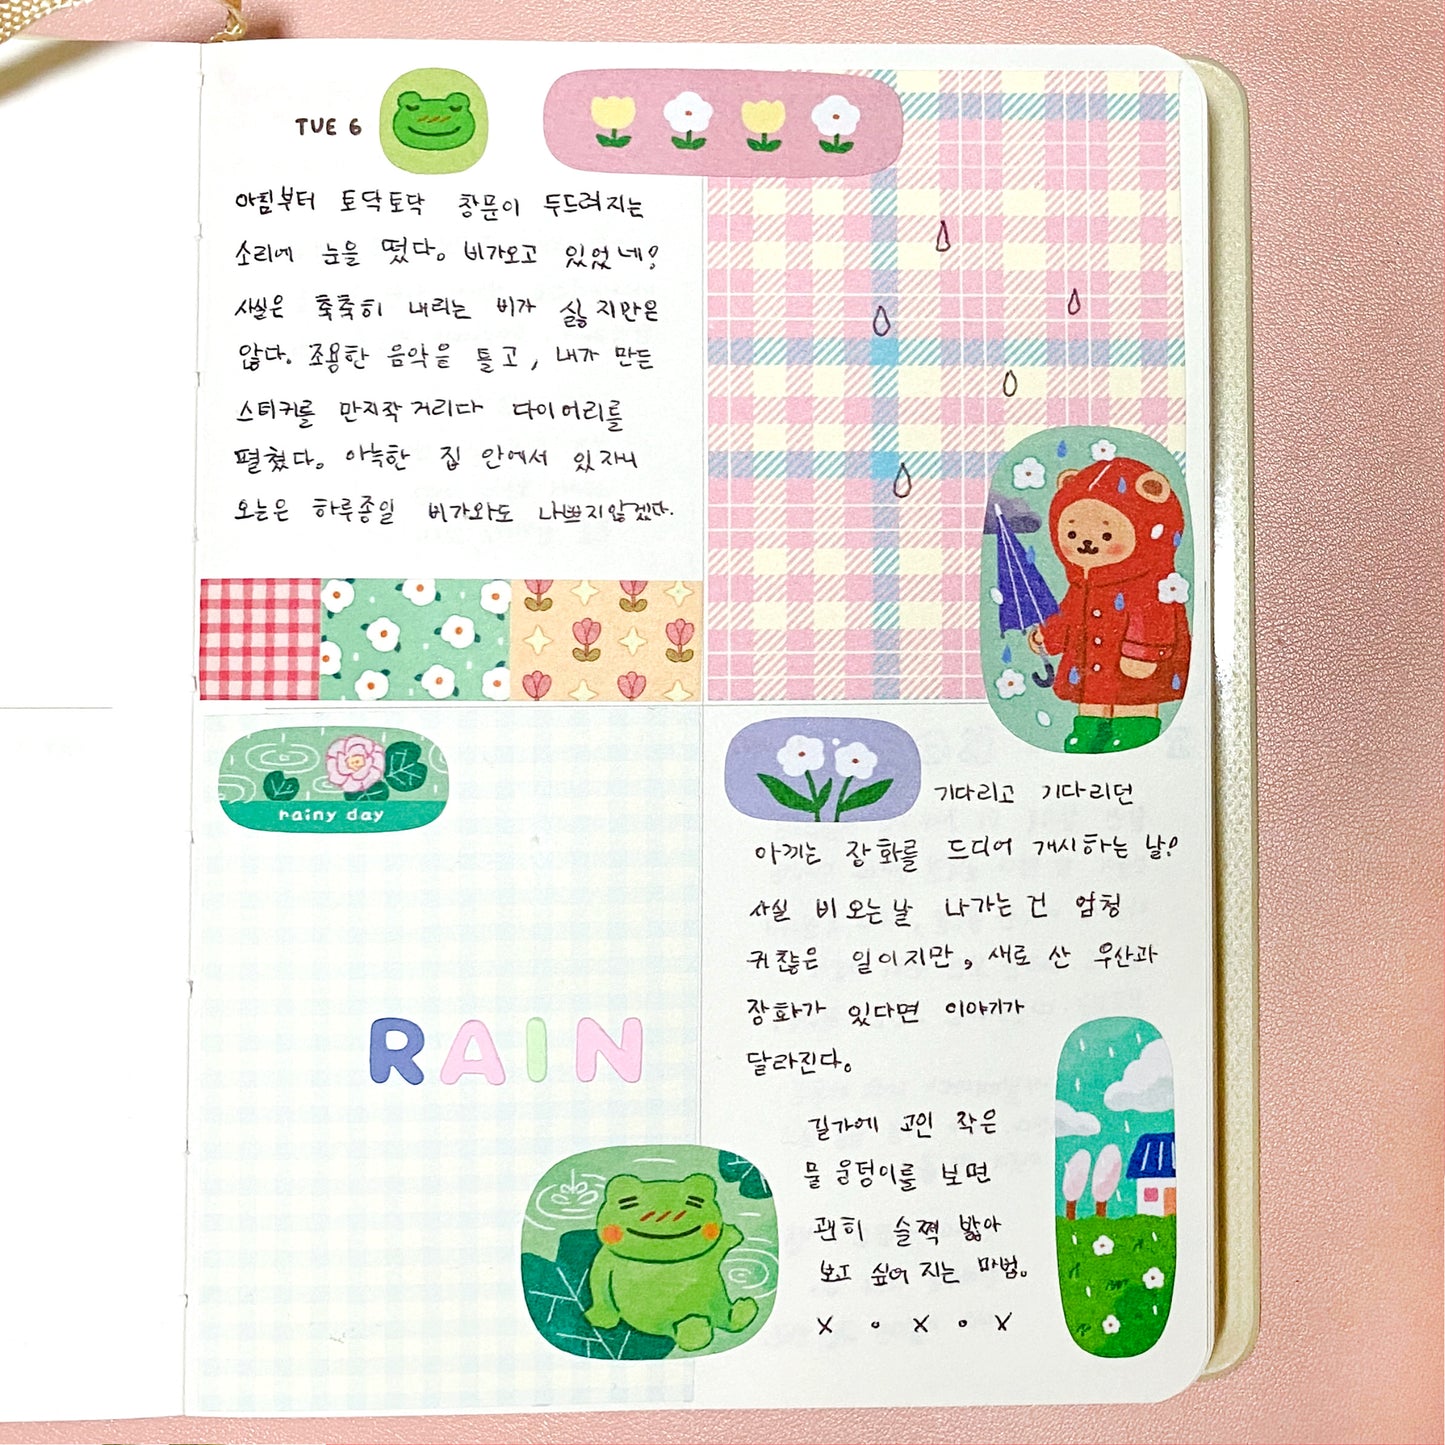 TUE 6
아침부터 토닥토닥 창문이 두드려지는
소리에 눈을 떴다. 비가오고 있었네!
사실은 축축히 내리는 비가 싫지만은
않다. 조용한 음악을 틀고, 내가 만든
스티커를 만지작거리다 다이어리를
펼쳤다. 아늑한 집 안에서 있자니
오늘은 하루종일 비가와도 나쁘지않겠다.
rainy day
RAIN
기다리고 기다리던
아끼는 장화를 드디어 개시하는 날!
사실 비오는날 나가는건 엄청
귀찮은 일이지만, 새로 산 우산과
장화가 있다면 이야기가
달라진다.
길가에 고인 작은
물 웅덩이를 보면
괜히 슬쩍 밟아
보고 싶어 지는 마법.
x o x o x